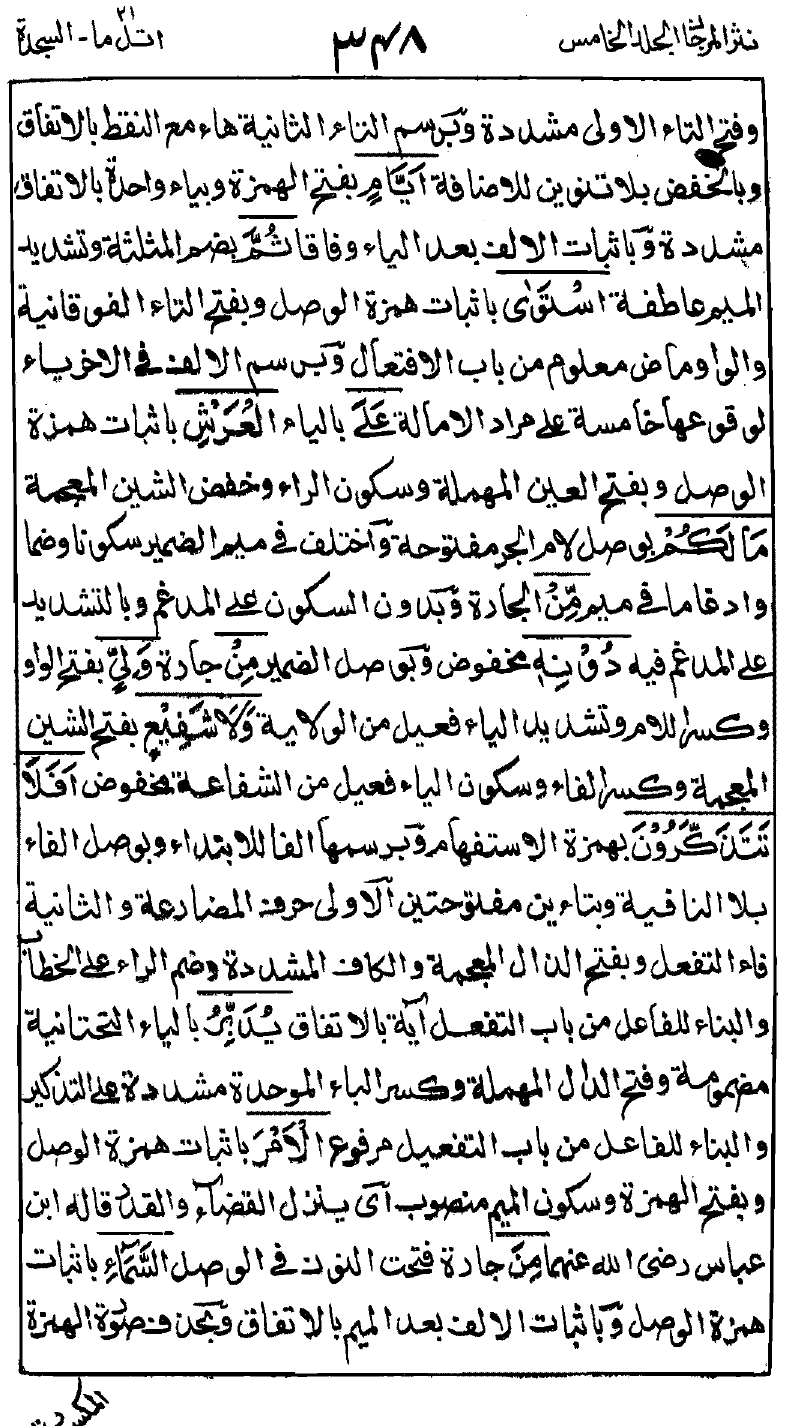 نثر المرجان الجلد الخامس ٣٤٨ اتل ما - السجدة ٢١
وفتح التاء الاولى مشددة وبرسم التاء الثانية هاء مع النقط بالاتفاق
وبالخفض بلا تنوين للاضافة اَيَّامٍ بفتح الهمزة وبياء واحدة بالاتفاق
مشددة وباثبات الالف بعد الياء وفاقا ثُمَّ بضم المثلثة وتشديد
الميم عاطفة اسْتَوٰى باثبات همزة الوصل وبفتح التاء الفوقانية
والواو ماض معلوم من باب الافتعال وبرسم الالف في الاخر ياء
لوقوعها خامسة على مراد الامالة عَلَى بالياء الْعَرْشِ باثبات همزة
الوصل وبفتح العين المهملة وسكون الراء وخفض الشين المعجمة
مَا لَكُمْ بوصل لام الجر مفتوحة واختلف في ميم الضمير سكونا وضما
وادغاما في ميم مِّنْ الجارة وبدون السكون على المدغم وبالتشديد
على المدغم فيه دُوْنِهٖ مخفوض وبوصل الضمير مِنْ جارة وَلِيٍّ بفتح الواو
وكسر اللام وتشديد الياء فعيل من الولاية وَلَا شَفِيْعٍ بفتح الشين
المعجمة وكسر الفاء وسكون الياء فعيل من الشفاعة مخفوض اَفَلَا
تَتَذَكَّرُوْنَ بهمزة الاستفهام وبرسمها الفا للابتداء وبوصل الفاء
بلا النافية وبتاءين مفتوحتين الاولى حرف المضارعة والثانية
فاء التفعل وبفتح الذال المعجمة والكاف المشددة وضم الراء على الخطاب
والبناء للفاعل من باب التفعل آية بالاتفاق يُدَبِّرُ بالياء التحتانية
مضمومة وفتح الدال المهملة وكسر الباء الموحدة مشددة على التذكير
والبناء للفاعل من باب التفعيل مرفوع الْاَمْرَ باثبات همزة الوصل
وبفتح الهمزة وسكون الميم منصوب اى ينزل القضاء والقدر قاله ابن
عباس رضى الله عنهما مِنَ جارة فتحت النون في الوصل السَّمَاءِ باثبات
همزة الوصل وباثبات الالف بعد الميم بالاتفاق وبحذف صورة الهمزة
المكسورة